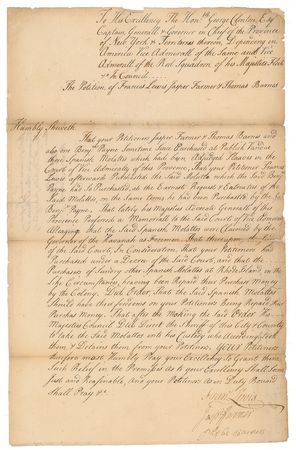 To His Excellency The Hon:ble George Clinton Esq
Captain Generall & Governor in Chief of the Province
of New York & Territories thereon Depending in
America Vice Admirall of the Same and Vice
Admirall of the Red Squadron of his Majesties Fleet
&a In Councill
The Petition of Francis Lewis Jasper Farmar & Thomas Barns
Humbly Sheweth
That your Petitioners Jasper Farmar & Thomas Barns and
also one Benj:a Payne Sometime Since Purchased at Publick Vendue
three Spanish Molattos which had been Adjudged Slaves in the
Court of Vice Admiralty of this Province, That your Petitioner Francis
Lewis afterwards Purchased the Said Molatto which the Said Benj:a
Payne had So Purchased, at the Earnest Request & Entreaties of the
Said Molatto, on the Same Terms he had been Purchased by the Said
Benj:a Payne, That lately his Majesties Attorney Generall of this
Province Preferred a Memoriall to the Said Court of Vice Admiralty
Alledging that the Said Spanish Molattos were Claimed by the
Governor of the Havannah as Freemen. That thereupon the Judge
of the Said Court, In Consideration that your Petitioners had
Purchased under a Decree of the Said Court, and that the
Purchasers of Sundry other Spanish Molattos at Rhode Island, in the
like Circumstances, having been Repaid their Purchase Money
by the Colony, Did Order, that the Said Spanish Molattos
Should have their freedoms on your Petitioners Being Repaid their
Purchas Money. That after the Making the Said Order His
Majesties Councill Did Direct the Sheriff of this City & County
to take the Said Molattos into his Custody who Accordingly took
them & Detains them from your Petitioners. Your Petitioners
therefore most Humbly Pray your Excellency to Grant them
Such Relief in the Premises as to your Excellency Shall Seem
Just and Reasonable, and your Petitioners as in Duty Bound
Shall Pray &a
Fran: Lewis
Jasp: Farmar
Barns